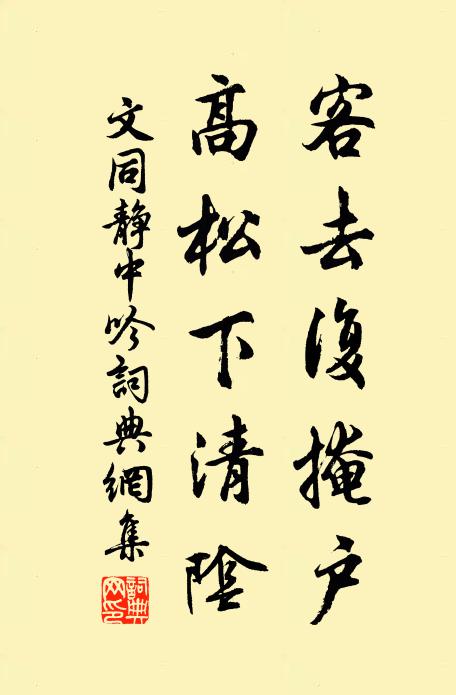 客去復掩户
高松下清陰
文同靜中吟詞典網集
詞典網印